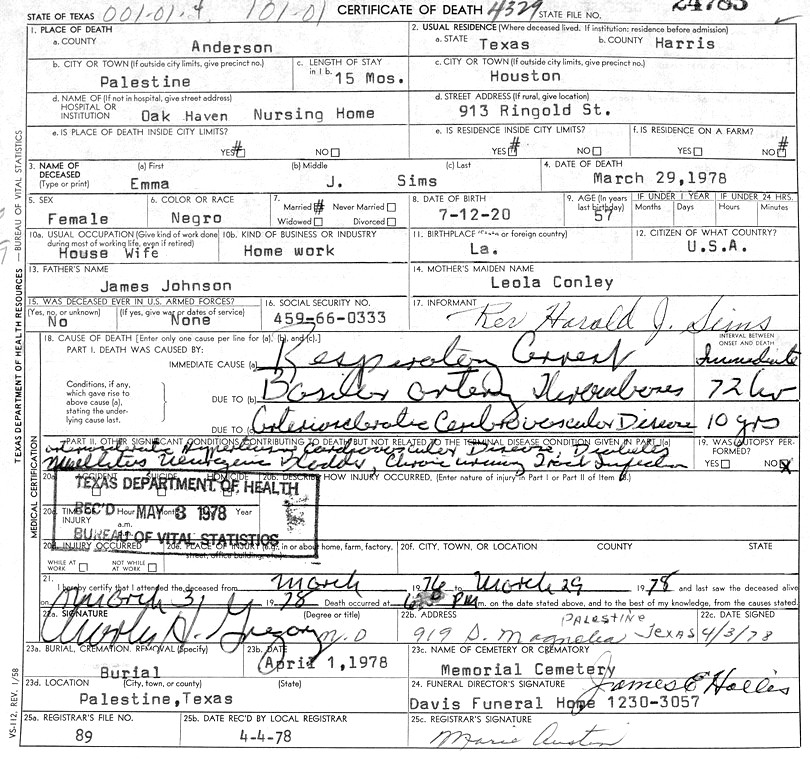 STATE OF TEXAS 001-01-4 101-01 CERTIFICATE OF DEATH 4329 STATE FILE NO. 24785
1. PLACE OF DEATH
a. COUNTY Anderson
2. USUAL RESIDENCE (Where deceased lived. If institution: residence before admission)
a. STATE Texas b. COUNTY Harris
b. CITY OR TOWN (If outside city limits, give precinct no.) Palestine
c. LENGTH OF STAY in 1 b. 15 Mos.
c. CITY OR TOWN (If outside city limits, give precinct no.) Houston
d. NAME OF (If not in hospital, give street address) HOSPITAL OR INSTITUTION Oak Haven Nursing Home
d. STREET ADDRESS (If rural, give location) 913 Ringold St.
e. IS PLACE OF DEATH INSIDE CITY LIMITS?
YES # NO
e. IS RESIDENCE INSIDE CITY LIMITS?
YES # NO
f. IS RESIDENCE ON A FARM?
YES NO #
3. NAME OF DECEASED (Type or print)
(a) First Emma
(b) Middle J.
(c) Last Sims
4. DATE OF DEATH March 29,1978
5. SEX Female
6. COLOR OR RACE Negro
7. Married # Never Married
Widowed Divorced
8. DATE OF BIRTH 7-12-20
9. AGE (In years last birthday) 57
IF UNDER 1 YEAR Months Days
IF UNDER 24 HRS. Hours Minutes
10a. USUAL OCCUPATION (Give kind of work done during most of working life, even if retired) House Wife
10b. KIND OF BUSINESS OR INDUSTRY Home work
11. BIRTHPLACE or foreign country) La.
12. CITIZEN OF WHAT COUNTRY? U.S.A.
13. FATHER'S NAME James Johnson
14. MOTHER'S MAIDEN NAME Leola Conley
15. WAS DECEASED EVER IN U.S. ARMED FORCES?
(Yes, no, or unknown) No
(If yes, give war or dates of service) None
16. SOCIAL SECURITY NO. 459-66-0333
17. INFORMANT Rev Harold J. Sims
18. CAUSE OF DEATH [Enter only one cause per line for (a), (b), and (c).]
INTERVAL BETWEEN ONSET AND DEATH
PART I. DEATH WAS CAUSED BY:
IMMEDIATE CAUSE (a) Respiratory Arrest Immediate
Conditions, if any, which gave rise to above cause (a), stating the underlying cause last.
DUE TO (b) Basilar artery Thrombosis 72 hr
DUE TO (c) Arteriosclerotic Cerebrovascular Disease 10 yrs
PART II. OTHER SIGNIFICANT CONDITIONS CONTRIBUTING TO DEATH BUT NOT RELATED TO THE TERMINAL DISEASE CONDITION GIVEN IN PART I(a)
Hypertensive Cardiovascular Disease, Diabetes
Mellitus, Neurogenic Bladder, Chronic urinary Tract Infection
19. WAS AUTOPSY PERFORMED?
YES NO X
20a. ACCIDENT SUICIDE HOMICIDE
20b. DESCRIBE HOW INJURY OCCURRED, (Enter nature of injury in Part I or Part II of Item 18.)
TEXAS DEPARTMENT OF HEALTH
REC'D MAY 3 1978
BUREAU OF VITAL STATISTICS
20c. TIME OF INJURY Hour a.m. Year
20d. INJURY OCCURRED
WHILE AT WORK NOT WHILE AT WORK
20e. PLACE OF INJURY (e.g., in or about home, farm, factory, street, office building, etc.)
20f. CITY, TOWN, OR LOCATION COUNTY STATE
21. I hereby certify that I attended the deceased from March 1976 to March 29 1978 and last saw the deceased alive
on March 31 1978 Death occurred at PM m. on the date stated above, and to the best of my knowledge, from the causes stated.
22a. SIGNATURE (Degree or title) Gregory M.D
22b. ADDRESS 919 S. Magnolia Palestine Texas
22c. DATE SIGNED 4/3/78
23a. BURIAL, CREMATION, REMOVAL (Specify) Burial
23b. DATE April 1,1978
23c. NAME OF CEMETERY OR CREMATORY Memorial Cemetery
23d. LOCATION (City, town, or county) (State) Palestine,Texas
24. FUNERAL DIRECTOR'S SIGNATURE James E Hollis
Davis Funeral Home 1230-3057
25a. REGISTRAR'S FILE NO. 89
25b. DATE REC'D BY LOCAL REGISTRAR 4-4-78
25c. REGISTRAR'S SIGNATURE Marie Austin
TEXAS DEPARTMENT OF HEALTH RESOURCES — BUREAU OF VITAL STATISTICS
MEDICAL CERTIFICATION
VS-112, REV. 1/58